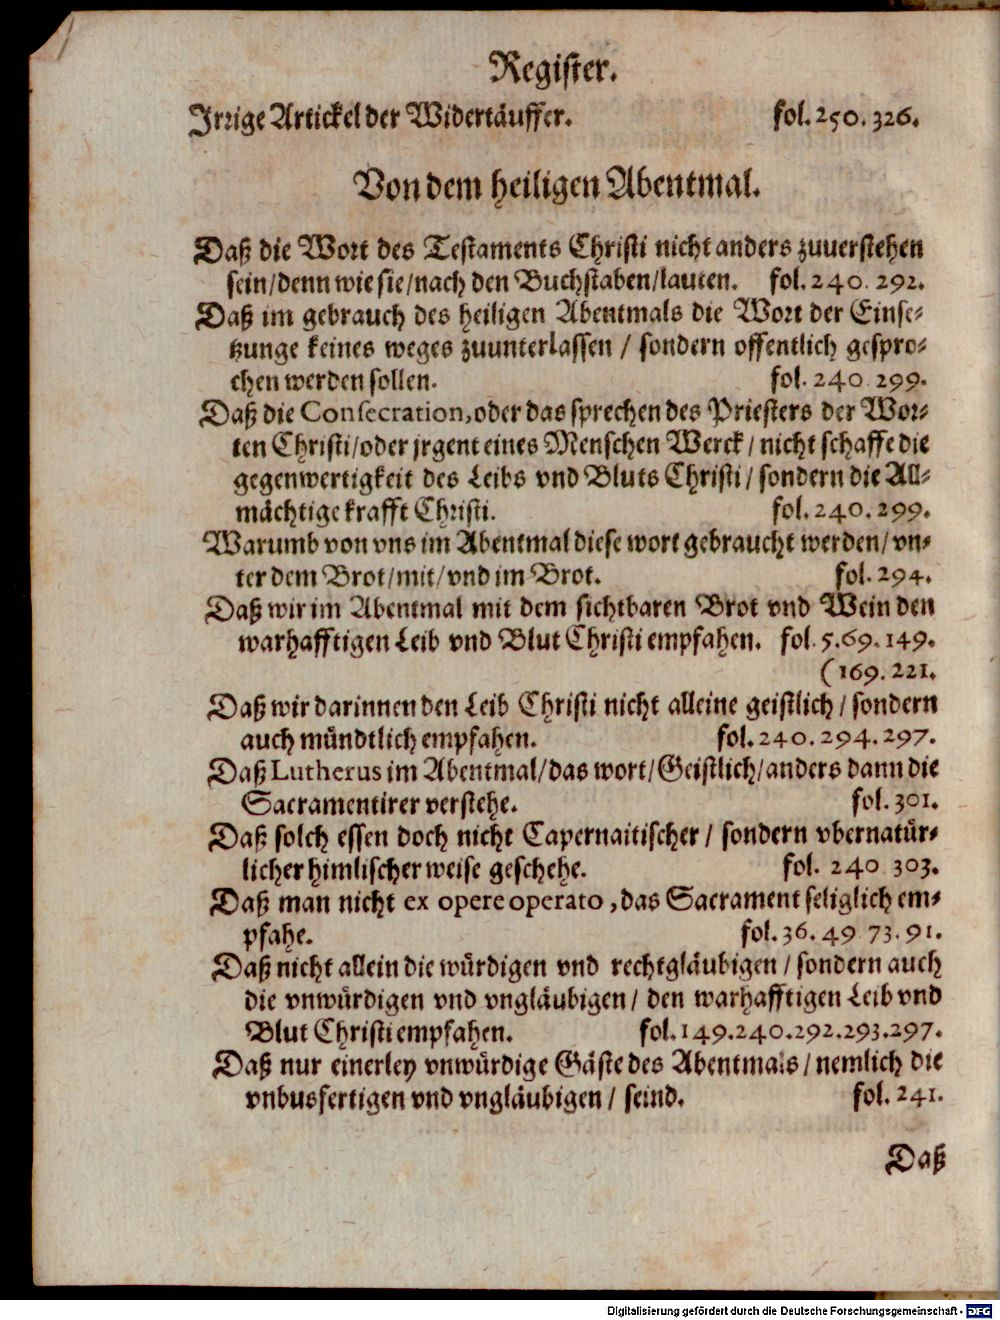 Register.
Irrige Artickel der Widertäuffer. fol. 250. 326.
Von dem heiligen Abentmal.
Daß die Wort des Testaments Christi nicht anders zuuerstehen
sein/denn wie sie/nach den Buchstaben/lauten. fol. 240. 292.
Daß im gebrauch des heiligen Abentmals die Wort der Einse⸗
tzunge keines weges zuunterlassen / sondern offentlich gespro⸗
chen werden sollen. fol. 240 299.
Daß die Consecration, oder das sprechen des Priesters der Wor⸗
ten Christi/oder jrgent eines Menschen Werck / nicht schaffe die
gegenwertigkeit des Leibs vnd Bluts Christi / sondern die All⸗
mächtige krafft Christi. fol. 240. 299.
Warumb von vns im Abentmal diese wort gebraucht werden/ vn⸗
ter dem Brot/mit/vnd im Brot. fol. 294.
Daß wir im Abentmal mit dem sichtbaren Brot vnd Wein den
warhafftigen Leib vnd Blut Christi empfahen. fol. 5. 69. 149.
(169. 221.
Daß wir darinnen den Leib Christi nicht alleine geistlich / sondern
auch mündtlich empfahen. fol. 240. 294. 297.
Daß Lutherus im Abentmal/das wort/Geistlich/anders dann die
Sacramentirer verstehe. fol. 301.
Daß solch essen doch nicht Capernaitischer / sondern vbernatür⸗
licher himlischer weise geschehe. fol. 240 303.
Daß man nicht ex opere operato, das Sacrament seliglich em⸗
pfahe. fol. 36. 49 73. 91.
Daß nicht allein die würdigen vnd rechtgläubigen / sondern auch
die vnwürdigen vnd vngläubigen / den warhafftigen Leib vnd
Blut Christi empfahen. fol. 149. 240. 292. 293. 297.
Daß nur einerley vnwürdige Gäste des Abentmals / nemlich die
vnbusfertigen vnd vngläubigen / seind. fol. 241.
Daß
Digitalisierung gefördert durch die Deutsche Forschungsgemeinschaft - DFG